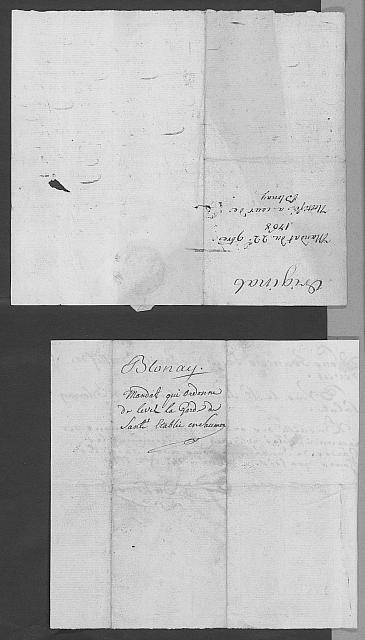 Original
Mandat du 22e 9bre
1798
Notifié à ceux de
Blonay
Blonay.
Mandat qui ordonne
de lever la Garde de
Santé Etablie en Saumon